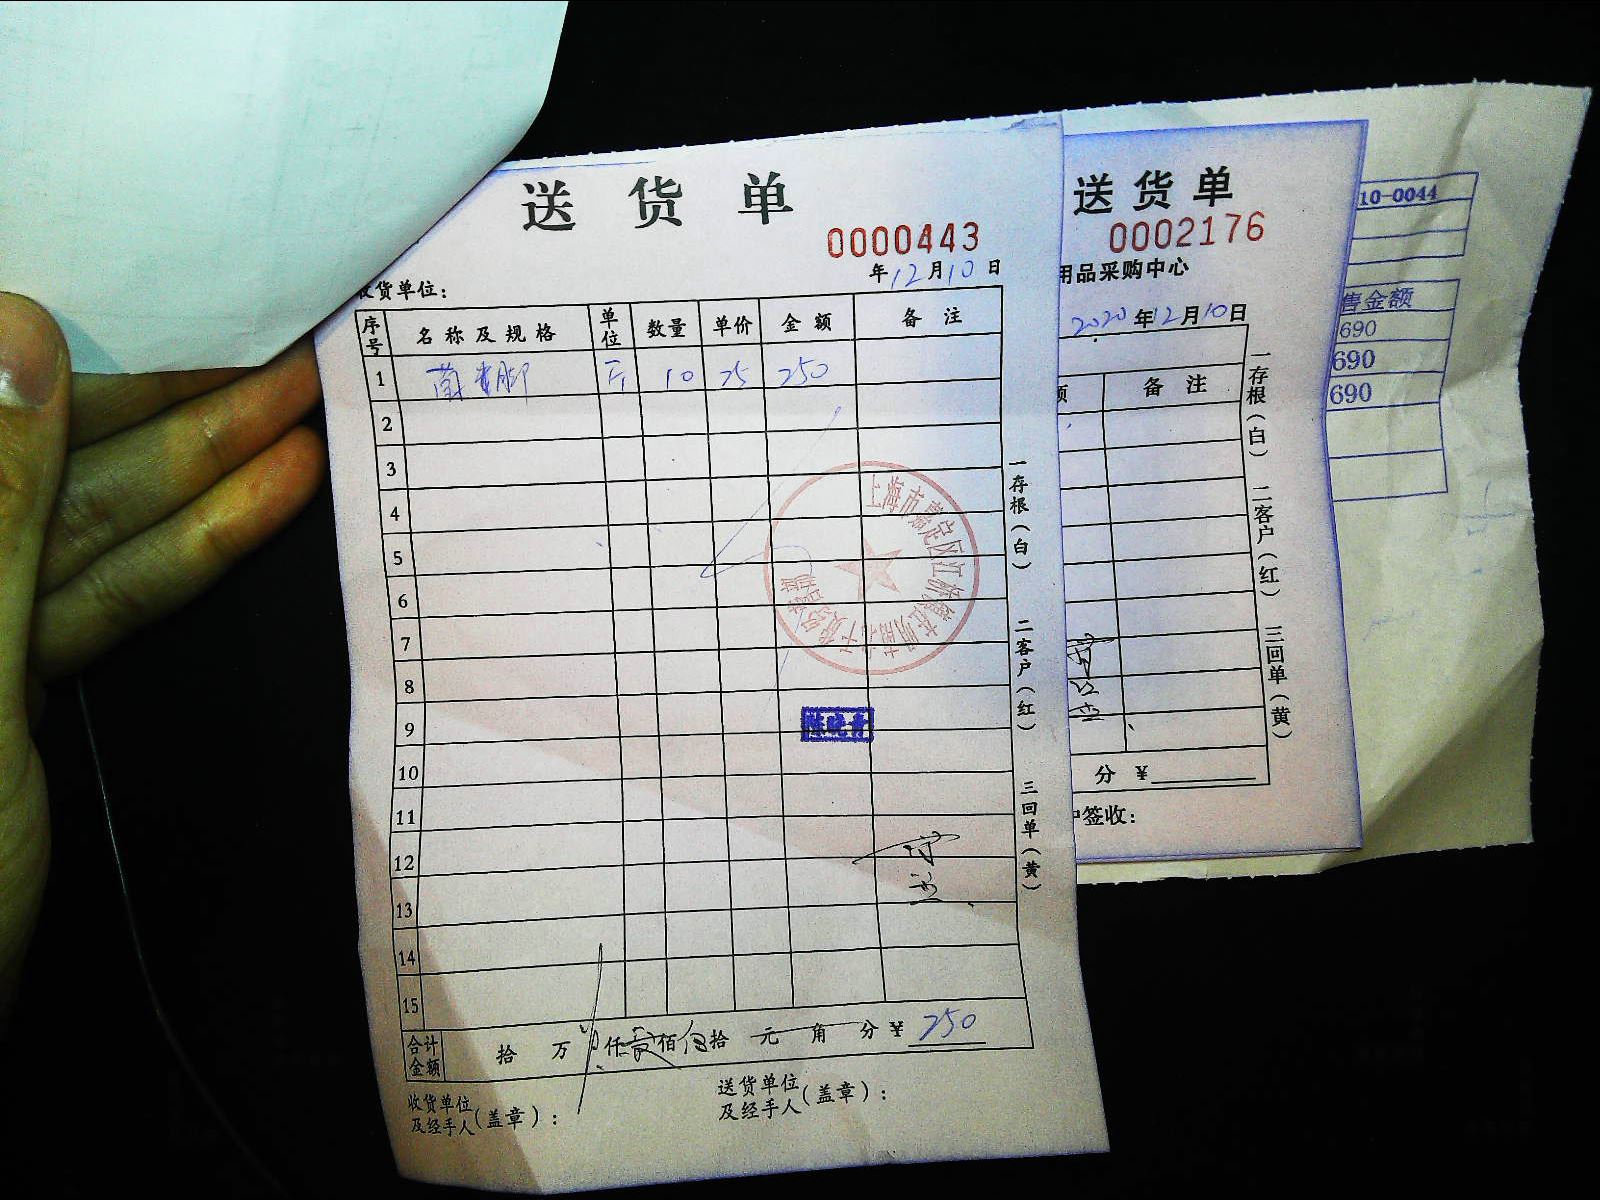 送货单
0000443
年12月10日
收货单位：
序号 名称及规格 单位 数量 单价 金额 备注
1 10 25 250
2
3
4
5
6
7
8
9
10
11
12
13
14
15
合计金额 拾 万 仟贰佰伍拾 元 角 分 ¥ 250
收货单位及经手人(盖章)：
送货单位及经手人(盖章)：
一存根(白) 二客户(红) 三回单(黄)
上海市嘉定区江桥镇
送货单
0002176
用品采购中心
2020年12月10日
备注
分 ¥
签收：
一存根(白) 二客户(红) 三回单(黄)
10-0044
售金额
690
690
690